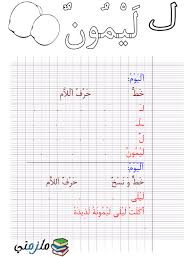 ل لَيْمُونٌ
اليَوْمَ:
خَطٌّ حَرْفُ اللَّامِ
لـ
ـلـ
ـل
ل
لَيْمُونٌ
اليَوْمَ:
خَطٌّ و نَسْخٌ حَرْفُ اللَّامِ
لَيْلَى
أَكَلَتْ لَيْلَى لَيْمُونَةً لَذِيذَةً
ملزمتي